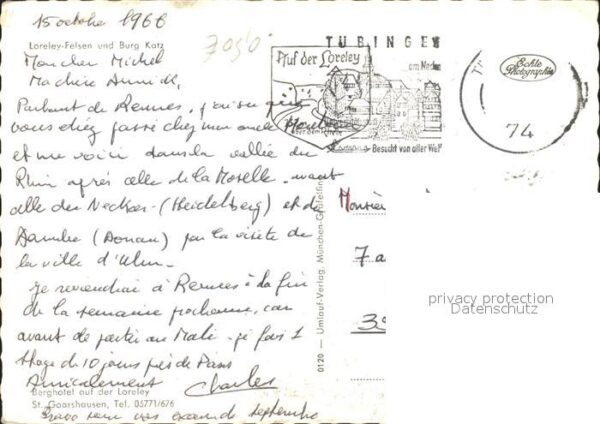 15 octobre 1966
Loreley-Felsen und Burg Katz
7050
Mon cher Michel
Ma chère Annick,
Partant de Rennes, j'ai su que
vous étiez passé chez mon oncle
et me voici dans la vallée du
Rhin après celle de la Moselle - avant
celle du Neckar - (Heidelberg) et du
Danube (Donau) par la visite de
la ville d'Ulm.
Je reviendrai à Rennes à la fin
de la semaine prochaine, car
avant de partir au Mali - je fais 1
stage de 10 jours près de Paris
Amicalement
Charles
Berghotel auf der Loreley
St. Goarshausen, Tel. 05771/676
Bravo pour vos examens de septembre
Auf der Loreley
TÜBINGEN
am Neckar
Besucht von aller Welt
Echte
Photographie
74
0120 — Umlauf-Verlag, München-Gräfelfing
Monsieur
7 a
privacy protection
Datenschutz